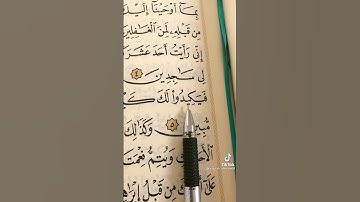 بِمَآ أَوْحَيْنَآ إِلَيْكَ
مِن قَبْلِهِۦ لَمِنَ ٱلْغَٰفِلِي
إِنِّي رَأَيْتُ أَحَدَ عَشَرَ
لِي سَٰجِدِينَ ٤
فَيَكِيدُوا۟ لَكَ كَ
مُّبِين ٥ وَكَذَٰلِكَ
ٱلْأَحَا وَيُتِمُّ نِعْمَتَ
عَلَىٰٓ مِن قَبْلُ إِبْرَٰهِ
TikTok